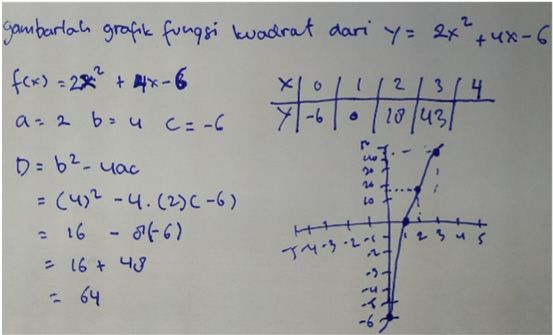 gambarlah grafik fungsi kuadrat dari y = 2x² + 4x - 6
f(x) = 2x² + 4x - 6
a = 2 b = 4 c = -6
D = b² - 4ac
= (4)² - 4 . (2)(-6)
= 16 - 8(-6)
= 16 + 48
= 64
X | 0 | 1 | 2 | 3 | 4
Y | -6 | 0 | 10 | 43 |
40
30
20
10
-5 -4 -3 -2 -1 1 2 3 4 5
-1
-2
-3
-4
-5
-6